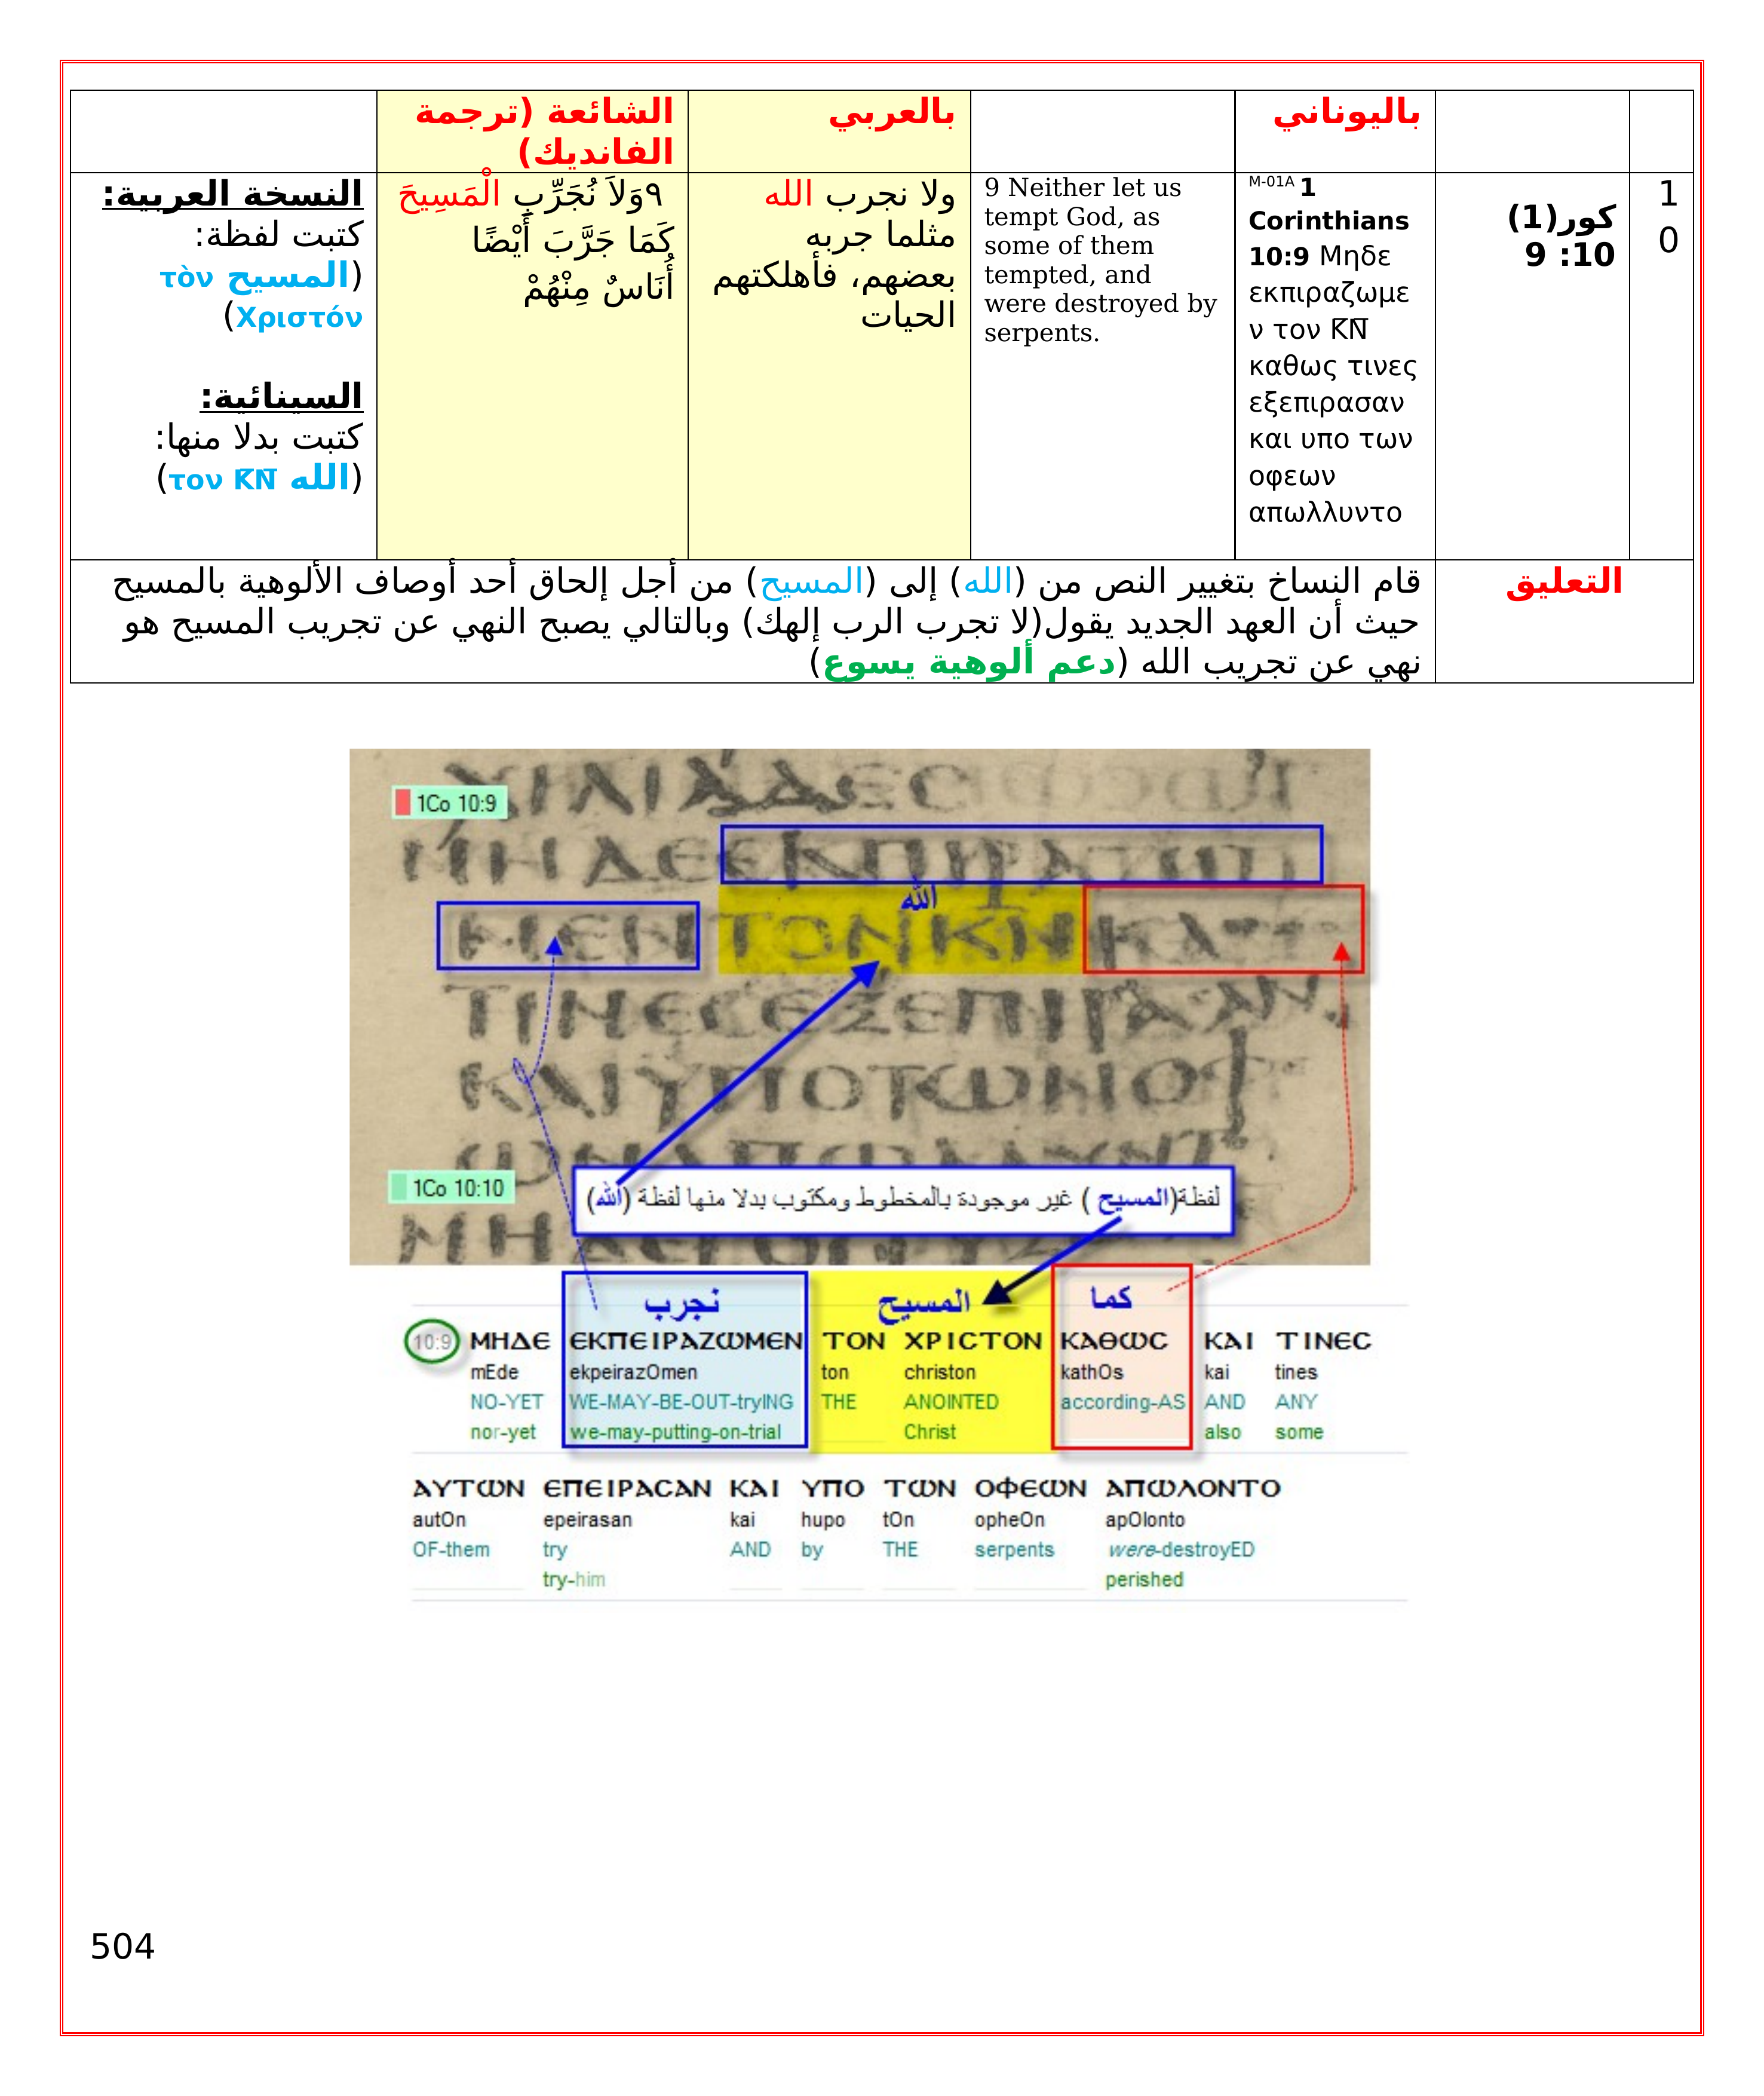 باليوناني
بالعربي
الشائعة (ترجمة
الفانديك)
1
0
كور(1)
10: 9
M-01A 1
Corinthians
10:9 Μηδε
εκπιραζωμε
ν τον K̅N̅
καθως τινες
εξεπιρασαν
και υπο των
οφεων
απωλλυντο
9 Neither let us
tempt God, as
some of them
tempted, and
were destroyed by
serpents.
ولا نجرب الله
مثلما جربه
بعضهم، فأهلكتهم
الحيات
٩وَلاَ نُجَرِّبِ الْمَسِيحَ
كَمَا جَرَّبَ أَيْضًا
أُنَاسٌ مِنْهُمْ
النسخة العربية:
كتبت لفظة:
(المسيح τὸν
Χριστόν)
السينائية:
كتبت بدلا منها:
(الله τον K̅N̅)
التعليق
قام النساخ بتغيير النص من (الله) إلى (المسيح) من أجل إلحاق أحد أوصاف الألوهية بالمسيح
حيث أن العهد الجديد يقول(لا تجرب الرب إلهك) وبالتالي يصبح النهي عن تجريب المسيح هو
نهي عن تجريب الله (دعم ألوهية يسوع)
1Co 10:9
ΜΗΔΕΕΚΠΙΡΑΖΩ
الله
ΜΕΝΤΟΝΚΝΚΑ
ΤΙΝΕϹΕΞΕΠΙΡΑϹΑΝ
ΚΑΙΥΠΟΤΩΝΟΦ
1Co 10:10
لفظة(المسيح ) غير موجودة بالمخطوط ومكتوب بدلا منها لفظة (الله)
نجرب المسيح كما
10:9 ΜΗΔΕ ΕΚΠΕΙΡΑΖΩΜΕΝ ΤΟΝ ΧΡΙϹΤΟΝ ΚΑΘΩϹ ΚΑΙ ΤΙΝΕϹ
mEde ekpeirazOmen ton christon kathOs kai tines
NO-YET WE-MAY-BE-OUT-tryING THE ANOINTED according-AS AND ANY
nor-yet we-may-putting-on-trial Christ also some
ΑΥΤΩΝ ΕΠΕΙΡΑϹΑΝ ΚΑΙ ΥΠΟ ΤΩΝ ΟΦΕΩΝ ΑΠΩΛΟΝΤΟ
autOn epeirasan kai hupo tOn opheOn apOlonto
OF-them try AND by THE serpents were-destroyED
try-him perished
504